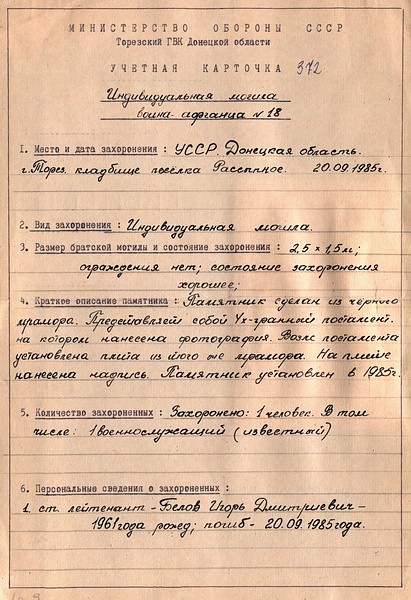 МИНИСТЕРСТВО ОБОРОНЫ СССР
Торезский ГВК Донецкой области
УЧЕТНАЯ КАРТОЧКА 372
Индивидуальная могила
воина-афганца №18
I. Место и дата захоронения : УССР. Донецкая область.
г. Торез. кладбище посёлка Рассыпное. 20.09.1985г.
2. Вид захоронения : Индивидуальная могила.
3. Размер братской могилы и состояние захоронения : 2,5 × 1,5 м;
ограждения нет; состояние захоронения
хорошее;
4. Краткое описание памятника : Памятник сделан из чёрного
мрамора. Представляет собой 4х-гранный постамент.
на котором нанесена фотография. Возле постамента
установлена плита из того же мрамора. На плите
нанесена надпись. Памятник установлен в 1985г.
5. Количество захороненных : Захоронено: 1 человек. В том
числе: 1 военнослужащий (известный)
6. Персональные сведения о захороненных :
1. ст. лейтенант - Белов Игорь Дмитриевич -
1961 года рожд; погиб - 20.09.1985 года.